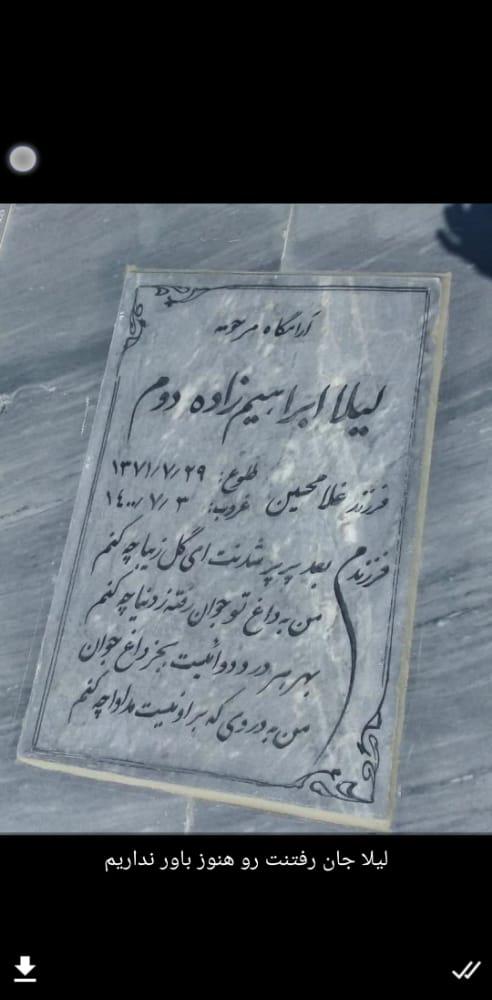 آرامگاه مرحومه
لیلا ابراهیم زاده دوم
فرزند غلامحسین
طلوع: ۱۳۷۱/۷/۲۹
غروب: ۱۴۰۰/۷/۳
فرزندم
بعد پرپر شدنت ای گل زیبا چه کنم
من به داغ تو جوان رفته ز دنیا چه کنم
بهر هر درد دوائیست بجز داغ جوان
من به دردی که بر او نیست مداوا چه کنم
لیلا جان رفتنت رو هنوز باور نداریم